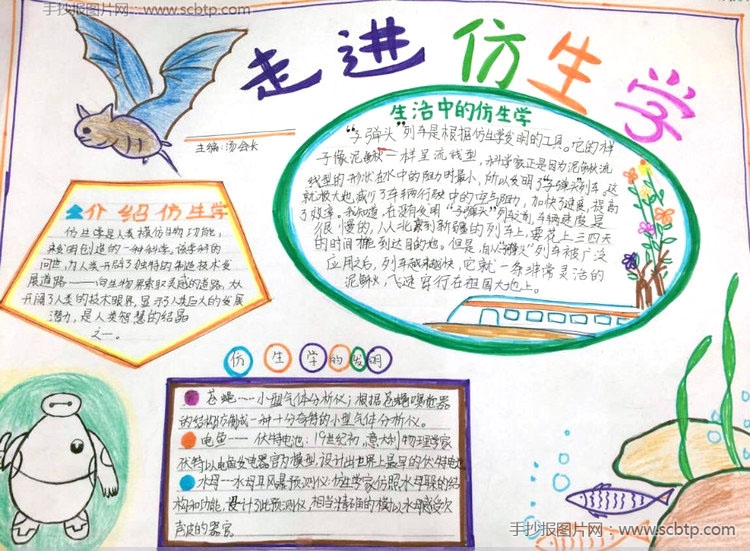 手抄报图片网：www.scbtp.com
走进仿生学
主编：汤会长
介绍仿生学
仿生学是人类模仿生物功能，
来发明创造的一种科学。该学科的
问世，为人类开辟了独特的制造技术发
展道路——向生物界索取灵感的道路，大
开阔了人类的技术眼界，显示了人类巨大的发展
潜力，是人类智慧的结晶
之一。
生活中的仿生学
“子弹头”列车是根据仿生学发明的工具。它的样
子像泥鳅一样呈流线型，科学家正是因为泥鳅流
线型的形状在水中的阻力最小，所以发明了“子弹头”列车。这
就极大地减少了车辆行驶中的空气阻力，加快了速度，提高
了效率。我知道，在没有发明“子弹头”列车之前，车辆速度是
很慢的，从北京到新疆的列车上，要花上三四天
的时间才能到达目的地。但是，自从“子弹头”列车被广泛
应用之后，列车越来越快，它就一条非常灵活的
泥鳅，飞速穿行在祖国大地上。
仿生学的发明
苍蝇——小型气体分析仪：根据苍蝇嗅觉器
的结构仿制成一种十分奇特的小型气体分析仪。
电鱼——伏特电池：19世纪初，意大利物理学家
伏特以电鱼发电器官为模型，设计出世界上最早的伏特电池
水母—水母耳风暴预测仪：仿生学家仿照水母耳的结
构和功能，设计了此预测仪，相当精确的模拟水母感受次
声波的器官
手抄报图片网：www.scbtp.com